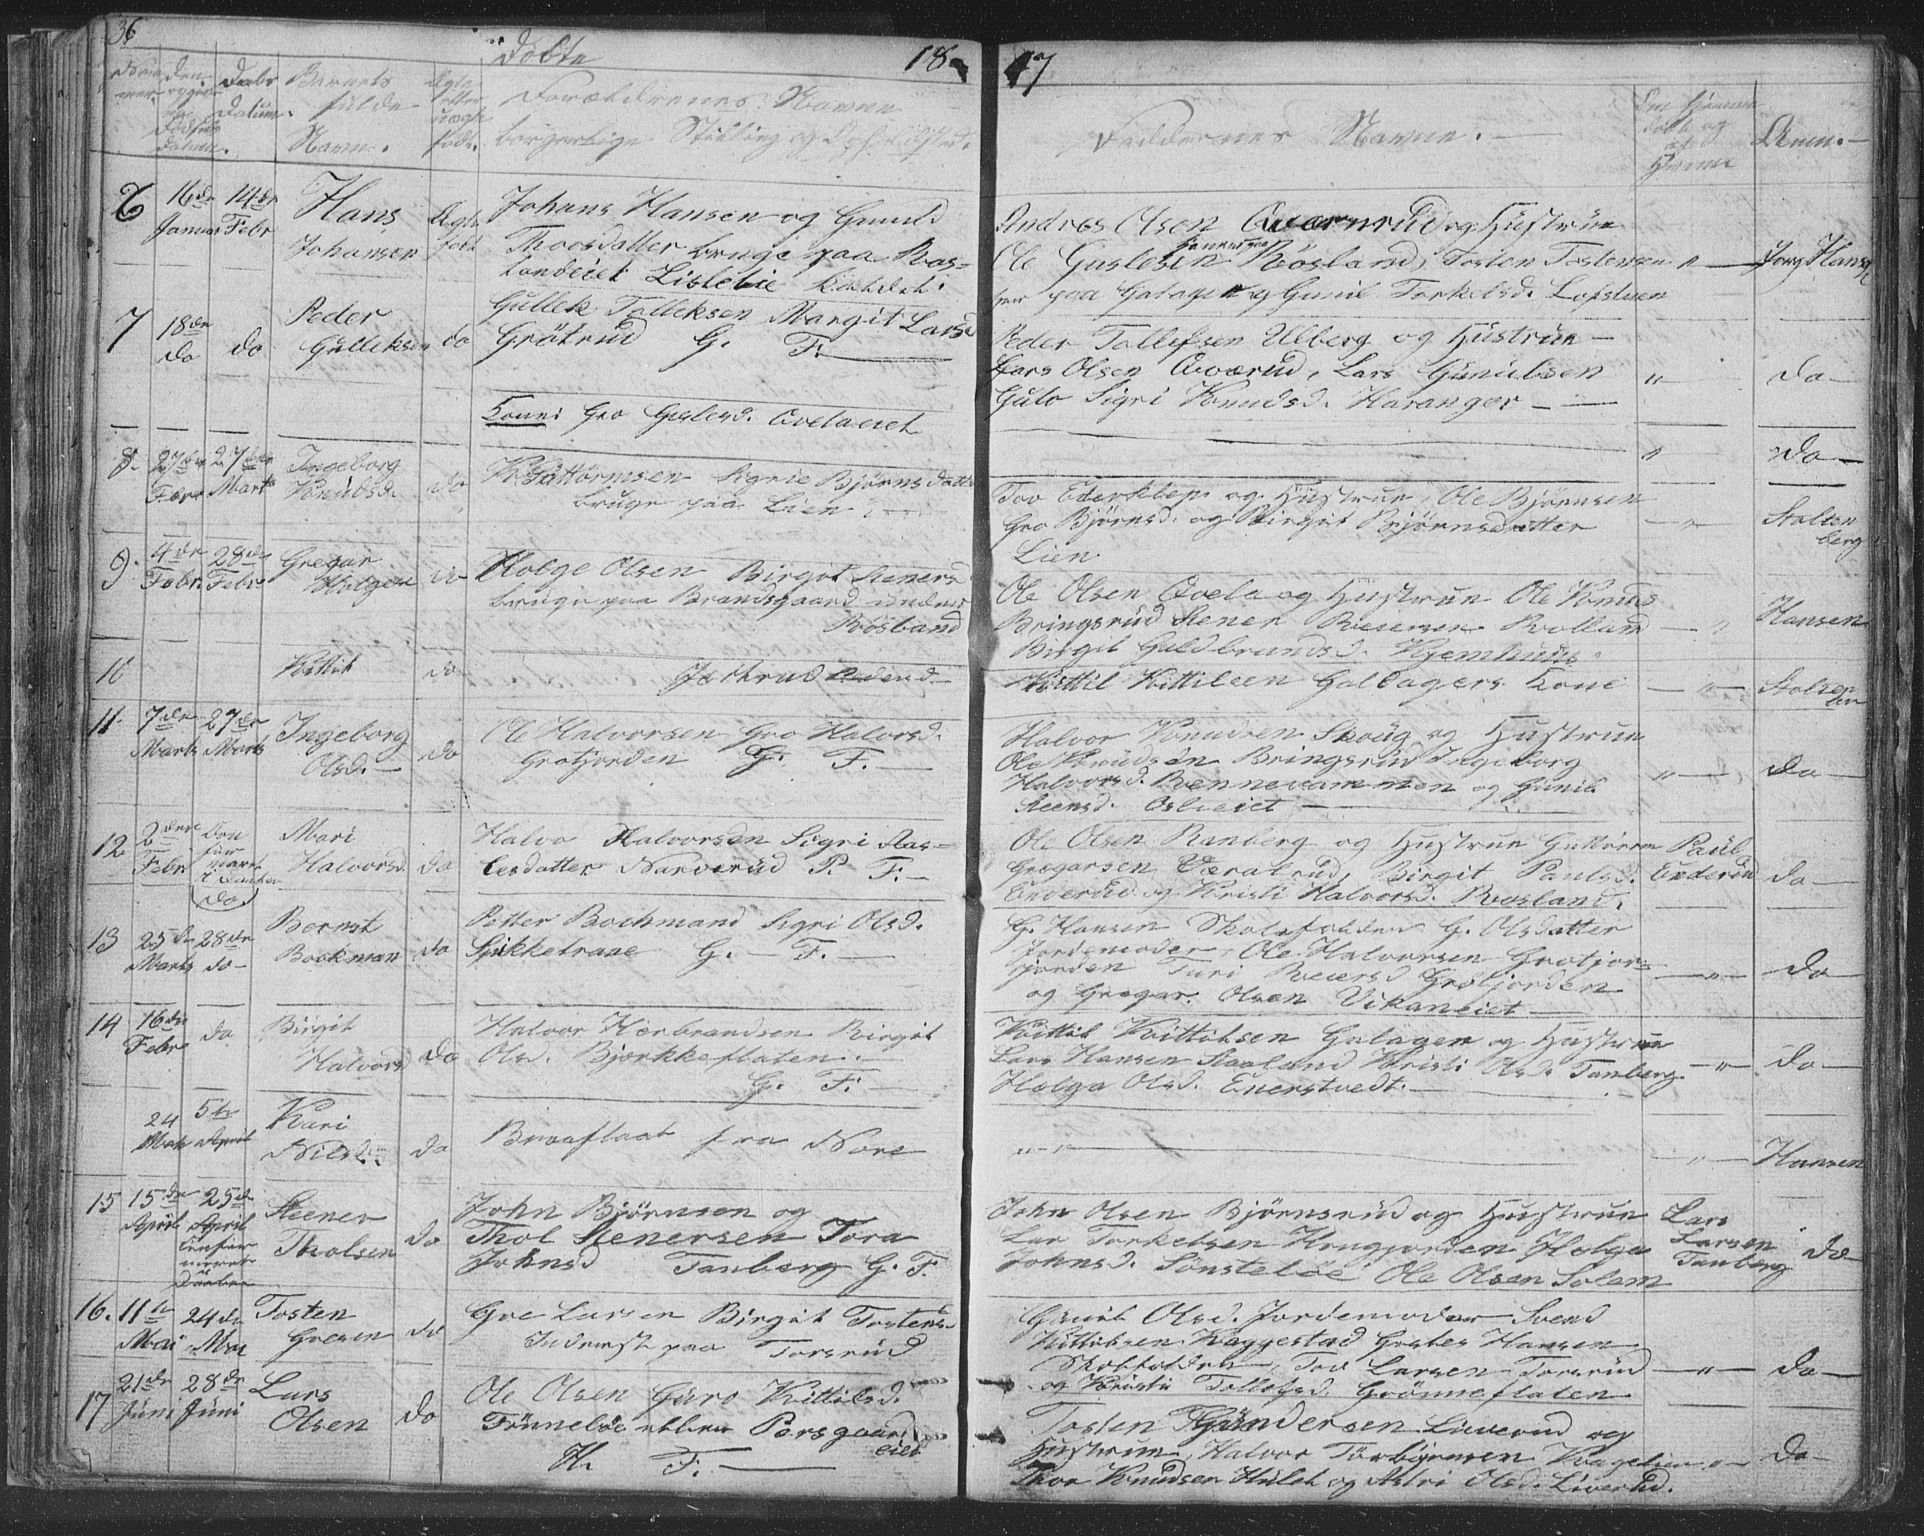 36
Døbte
18 47
Num
mer.
Den
Daabs
Datum.
Barnets
fulde
Navn.
Ægte
eller
uægte
født.
Forældrenes Navne
borgerlige Stilling og Opholdsted.
Faddernes Navne.
Hjemme
døbt og
af
Hvem
Anm.
6
16de
Januar
14de
Febr
Hans
Johansen
Ægte
født
Johans Hansen og Gunild
Thoosdatter bruge paa Ros-
landeiet Lislelie kaldet.
Andres Olsen Qværnrud og Hustrue
Ole Gulesen Røsland, Tosten Tostensen
paa Galagen og Gunil Torkelsd. Lofstuen
Jorg Hansen
7
18de
do
do
Peder
Gulleksen
do
Gullek Tolleksen Margit Larsd
Grötrud G. F.
Peder Tollefsen Ulberg og Hustrue
Lars Olsen Qværud, Lars Gunulsen
Gulo Sigri Knudsd. Haranger
"
do
Kone: Gro Gislesd. Qvelaeiet
"
do
8.
27de
Febr
27de
Marts
Ingeborg
Knudsd.
do
K. Guttormsen Sigrie Bjørnsdatter
bruge paa Lien
Tov Ederklep og Hustrue, Ole Bjørnsen
Gro Bjørnsd. og Birgit Bjørnsdatter
Lien
"
Stolten
berg
9.
4de
Febr.
28de
Febr
Gregar
Holgesen
do
Holge Olsen Birgit Stenersd
bruge paa Brandsgaard under
Røsland
Ole Olsen Qvela og Hustrue Ole Knuds
Bringsrud Stener Reiersen Rolland
Birgit Guldbrandsd. Hjemhuus
"
Hansen
10
Kittil
do
Jørtrud
Kittil Kittilsen Goldagers Kone
"
Stolten
11.
7de
Marts
27de
Marts
Ingeborg
Olsd.
do
Ole Halvorsen Gro Halvorsd.
Grotjorden G. F.
Halvor Knudsen Skoug og Hustrue
Ole Knudsen Bringsrud Ingeborg
Halvorsd. Rennevammen og Gunil
Steensd. Osleeiet
"
do
12
2den
Febr
Den
før
mært
do
Mari
Halvorsd.
do
Halvo Halvorsen Sigri Aas-
lesdatter Narverud P. F.
Ole Olsen Ranberg og Hustrue Guttorm
Gregarsen Væratrud, Birgit Paulsd.
Enderud og Kristi Halvorsd. Rosland.
Paul
Enderud
do
13
25de
Marts
28de
do
Bernt
Bookman
do
Petter Bochmand Sigri Olsd.
Spikketraae G. F.
G. Hansen Skoleholder G. Olsdatter
Jordemoder, Ole Halvorsen Grotjor-
jorden Turi Reiersd Grotjorden
og Gregar Olsen Vikaneiet
"
do
14
16de
Febr
do
Birgit
Halvorsd
do
Halvor Herbrandsen Birgit
Olsd. Bjørkkeflaten
G. F.
Kittil Kittilsen Galagen og Hustrue
Lars Hansen Skaaland Kristi Olsd. Tanberg
Holga Olsd. Enerstvedt.
"
do
24
Mats
5te
April
Kari
Nilsd.
do
Braaflaat fra Nore
"
Hansen
15
15de
April
25de
April
Steener
Tholsen
do
John Bjørnsen og
Thol Stenersen Tora
Johnsd Tanberg G. F.
John Olsen Bjørnsrud og Hustrue
Lar Torkelsen Haugjorden Holga
Johnsd. Sønsteløe Ole Olsen Solem
Lars
Larsen
Tanberg
do
16.
11te
Mai
24de
Mai
Tosten
Goesen
do
Goe Larsen Birgit Tostensd
Inderst paa Torsrud
Gunil Olsd. Jordemoder Svend
Kittilsen Kaggestad Gostes Hansen
Skoleholder, Tov Larsen Torsrud
og Kristi Tollefsd. Grønneflaten
"
do
17
21de
Juni
28de
Juni
Lars
Olsen
do
Ole Olsen Guro Kittilsd.
Tønneløe eller Porsgaards
eiet
H. F.
Tosten Gundersen Liverud og
Hustrue, Halvor Torbjørnsen Vragelien
Thor Knudsen Hulek og Astri Olsd. Liverud.
"
do